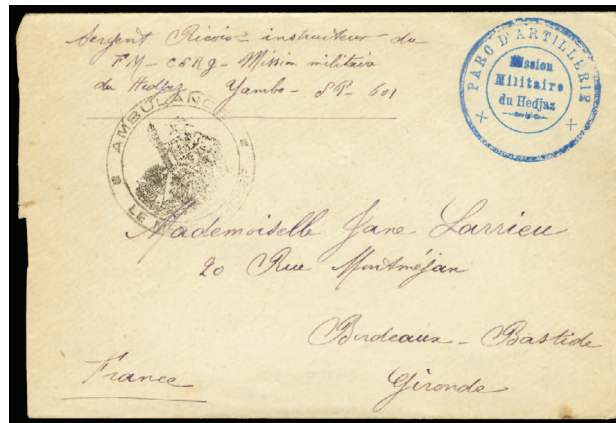 Sergent Ricois - instructeur du
FM - CSRG - Mission militaire
du Hedjaz Yambo - SP - 601
PARC D'ARTILLERIE
Mission
Militaire
du Hedjaz
AMBULANCE
LE
Mademoiselle Jane Larrieu
20 Rue Montméjan
Bordeaux - Bastide
France
Gironde